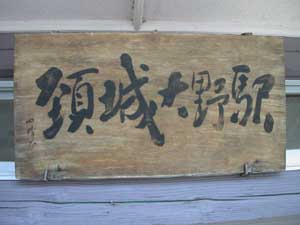 頚城大野駅